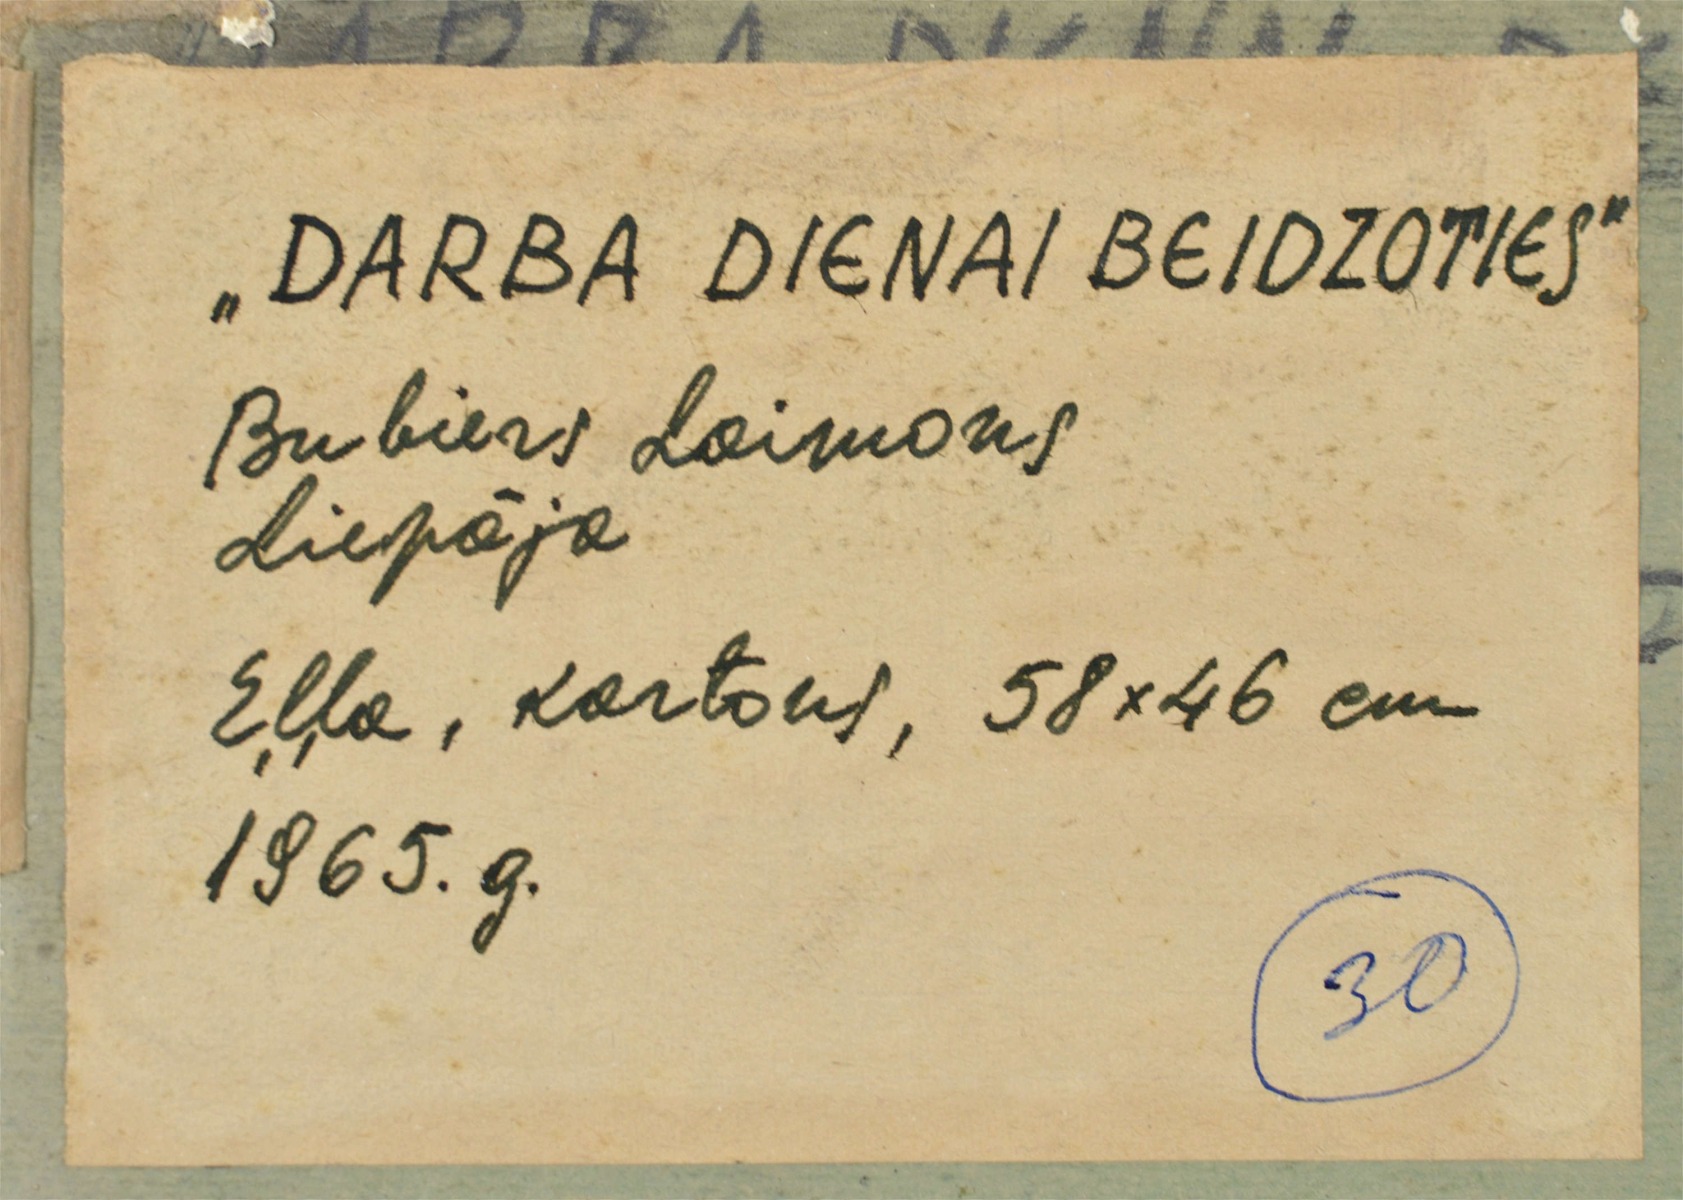 „DARBA DIENAI BEIDZOTIES"
Bubiers Laimons
Liepāja
Eļļa, kartons, 58×46 cm
1965. g.
30